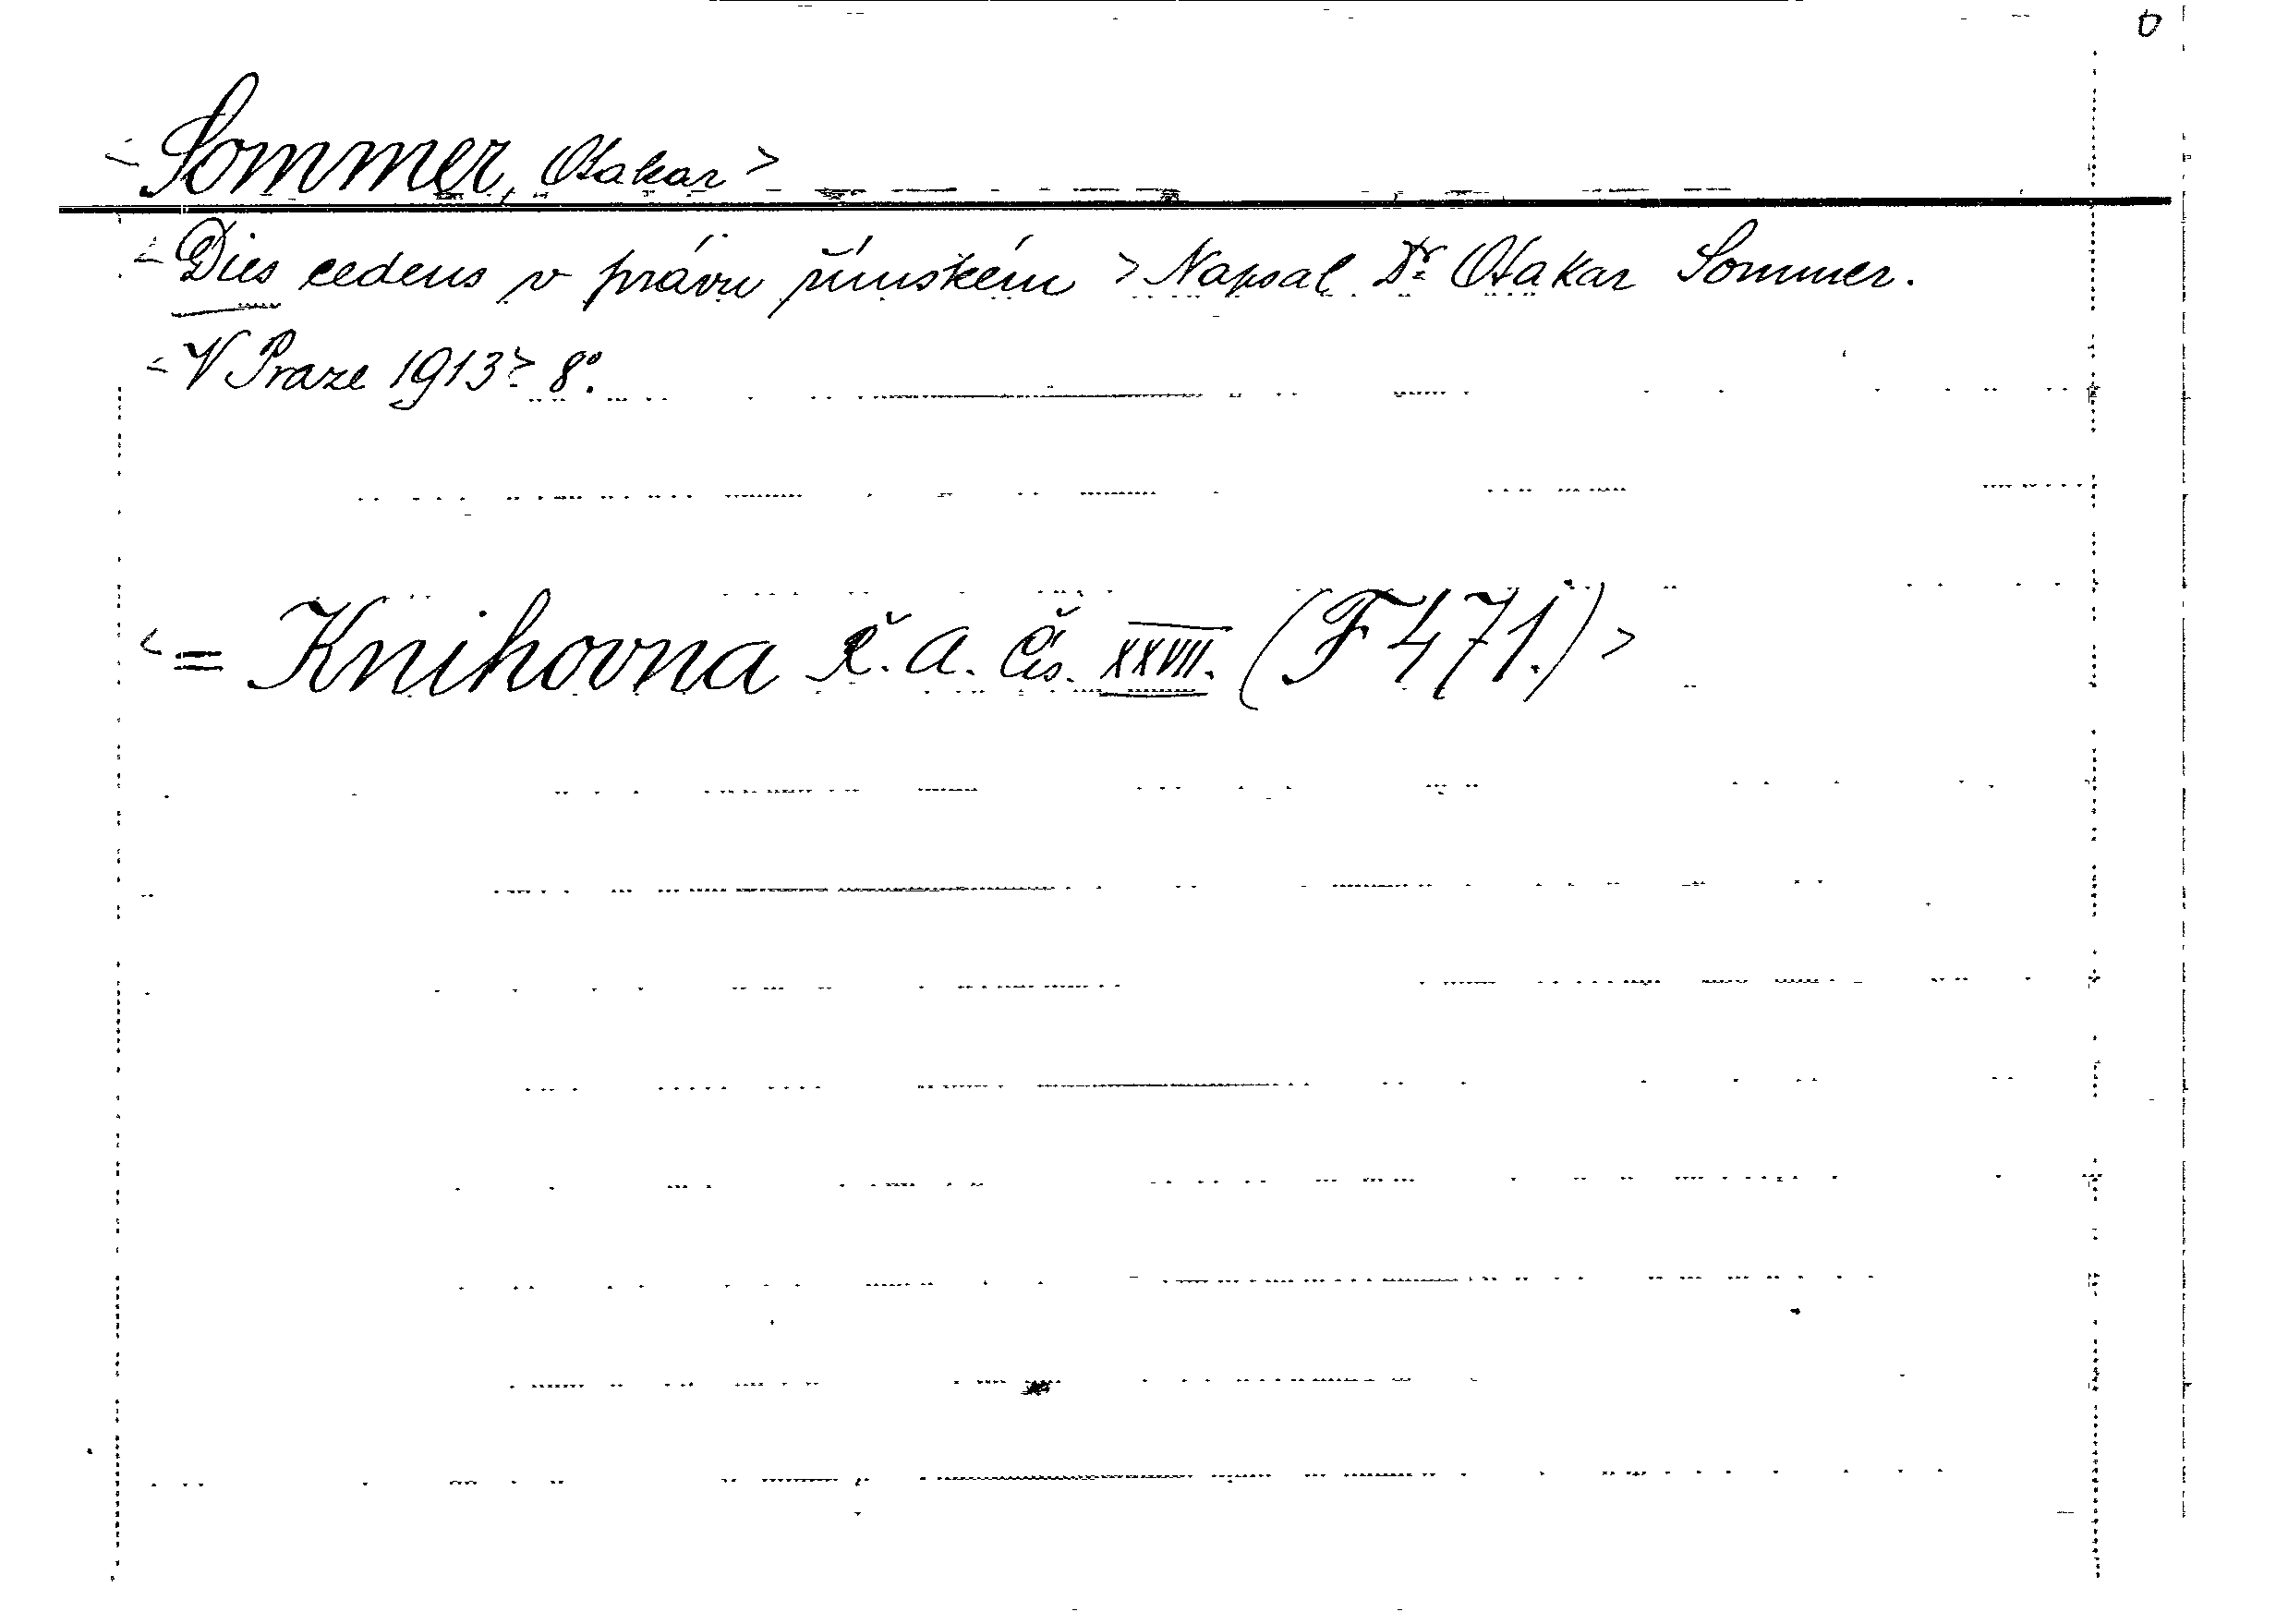 <Sommer, Otakar>
<Dies cedens v právu římském> Napsal Dr. Otakar Sommer.
<V Praze 1913> 8°.
<= Knihovna Č. A. Čís. XXVII. (F 471.)>